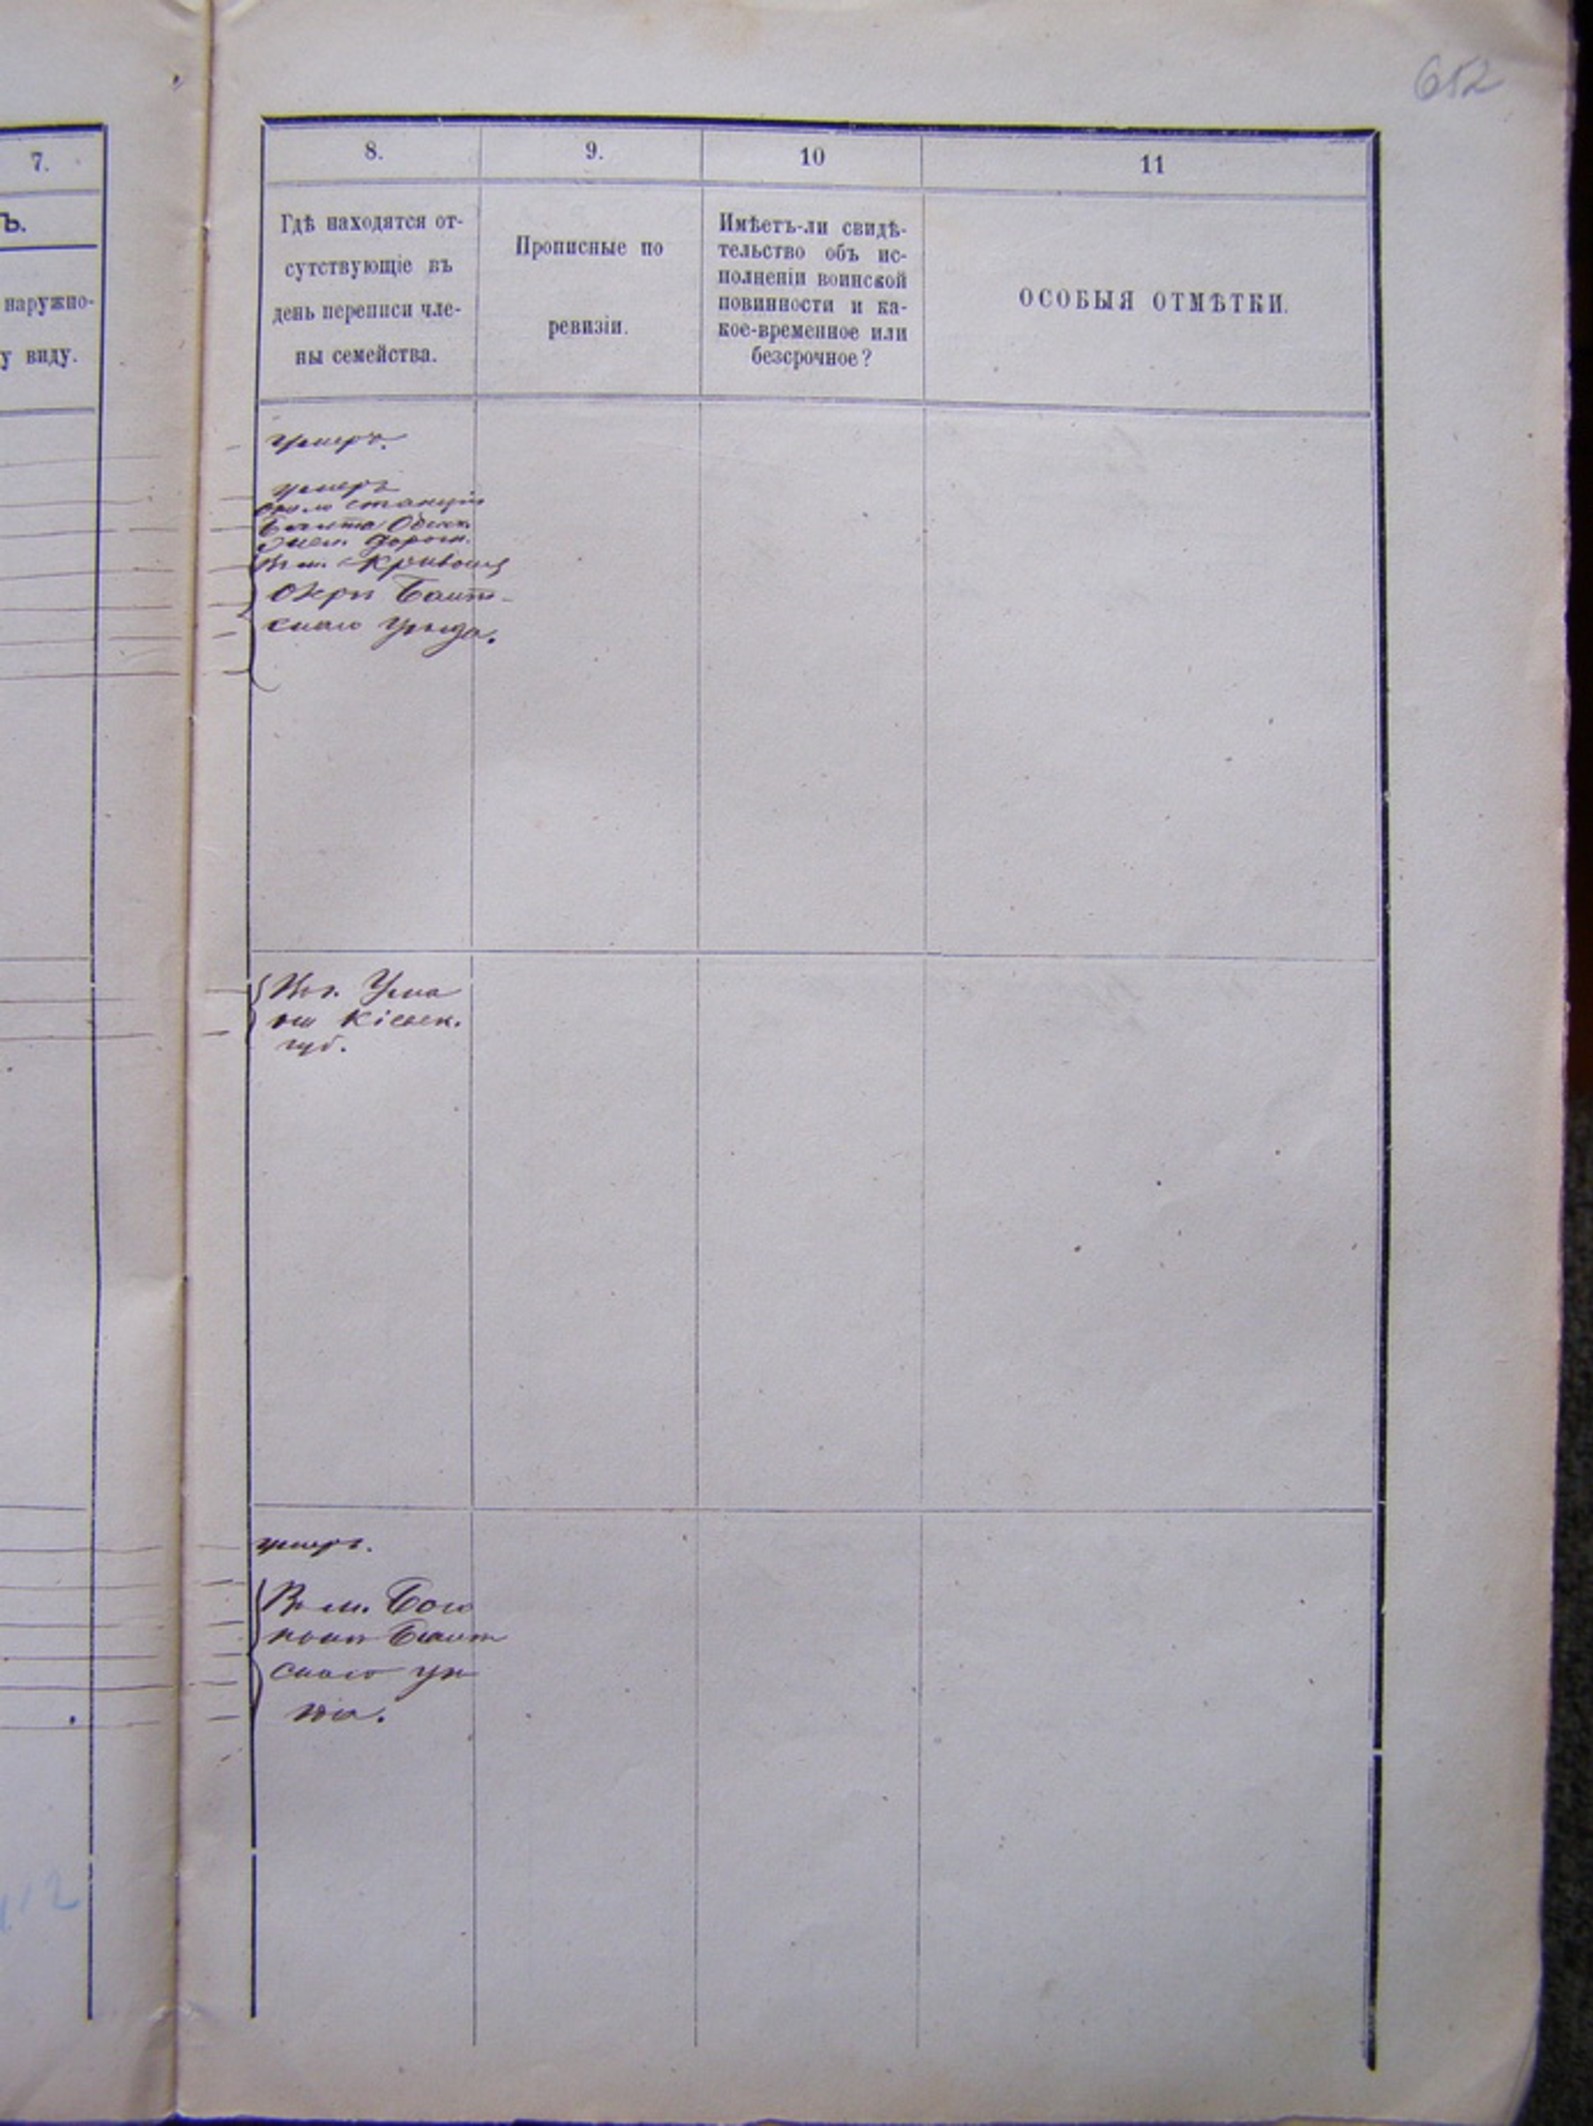 652
7.
ъ.
наружно-
у виду.
8.
9.
10
11
Гдѣ находятся от-
сутствующіе въ
день переписи чле-
ны семейства.
Прописные по
ревизіи.
Имѣетъ-ли свидѣ-
тельство объ ис-
полненіи воинской
повинности и ка-
кое-временное или
безсрочное?
ОСОБЫЯ ОТМѢТКИ.
умеръ.
умеръ
около станціи
Балта Одесск.
дороги.
В м. Кривомъ
Озерѣ Балт-
скаго уѣзда.
В г. Ума
ни Кіевск.
губ.
умеръ.
В м. Бого
полѣ Балт
скаго уѣ
зда.
12